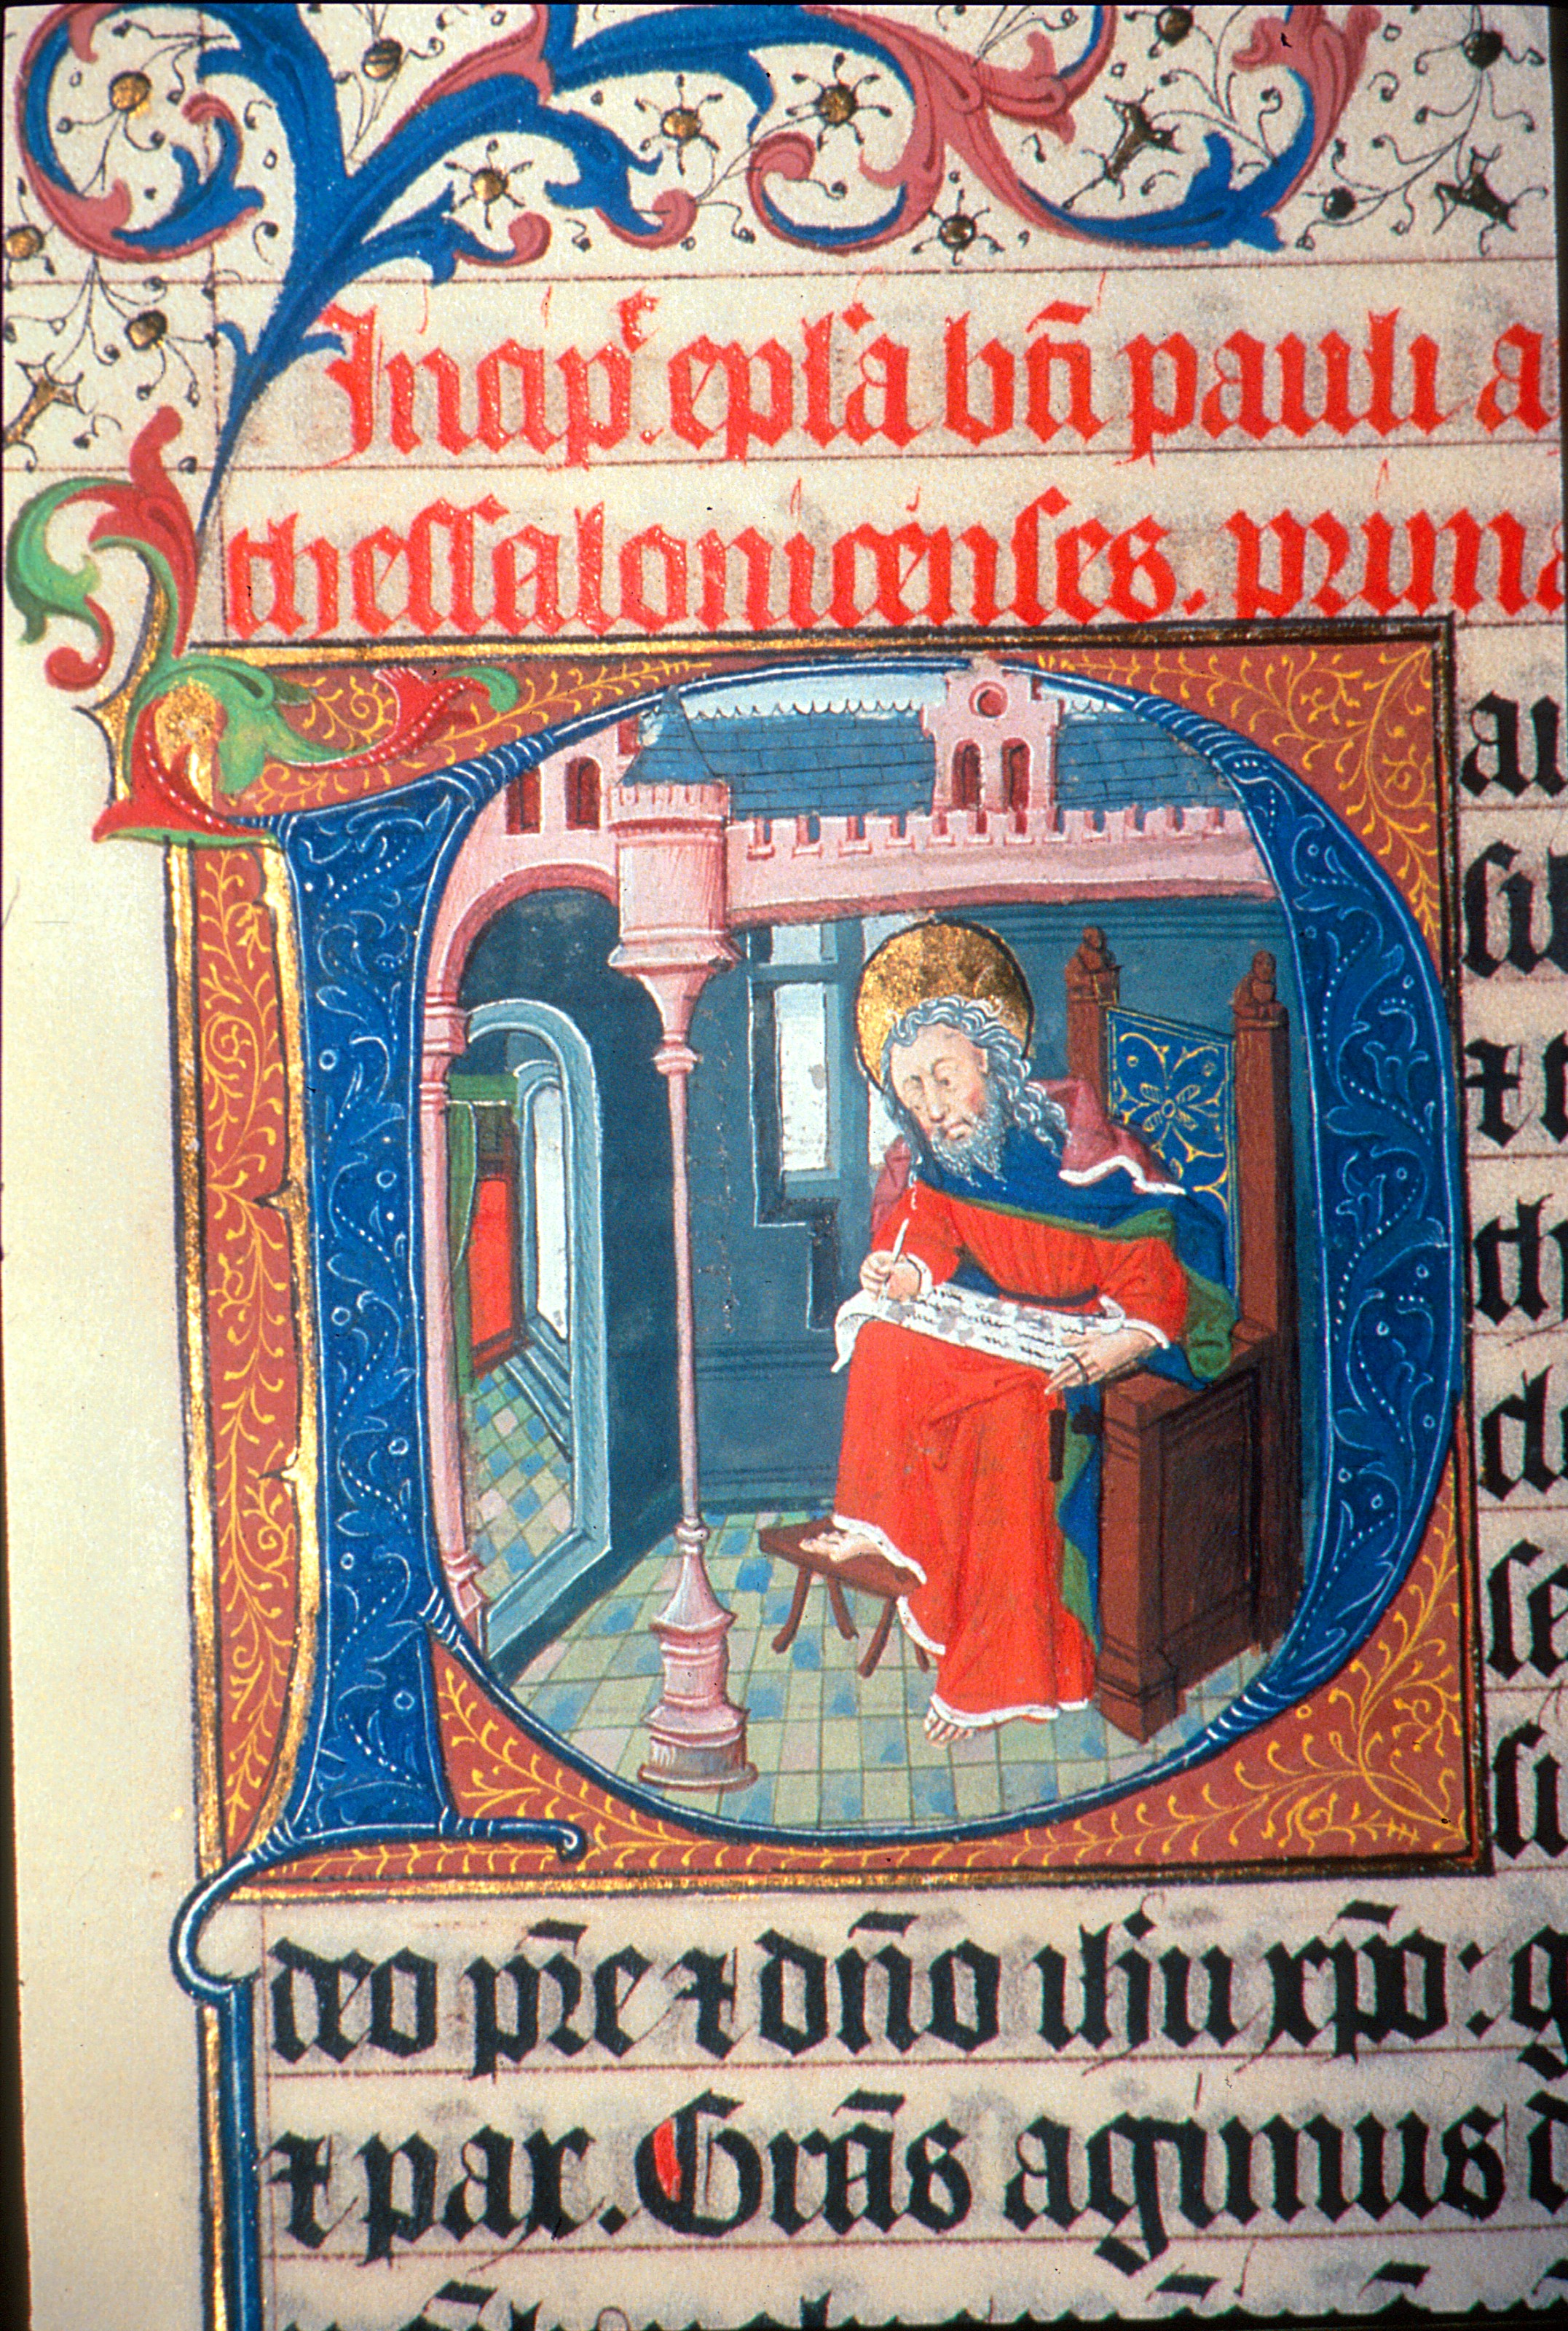 Incip͛. ep̄la bt̄i pauli a
thessalonicenses. prima
P
au
sil
⁊
th
cl
se
si
deo p̄re ⁊ dn̄o ihū xp̄o: g
⁊ pax. Grās agimus d